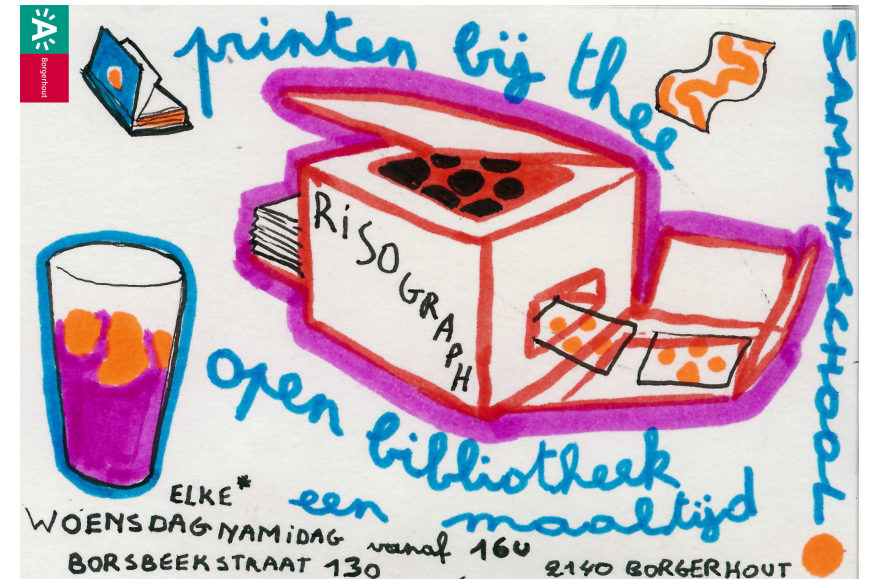 Borgerhout
printen bij thee
SAMENSCHOOL
RiSOGRAPH
open bibliotheek
een maaltijd
ELKE*
WOENSDAGNAMiDAG vanaf 16u
BORSBEEKSTRAAT 130 2140 BORGERHOUT